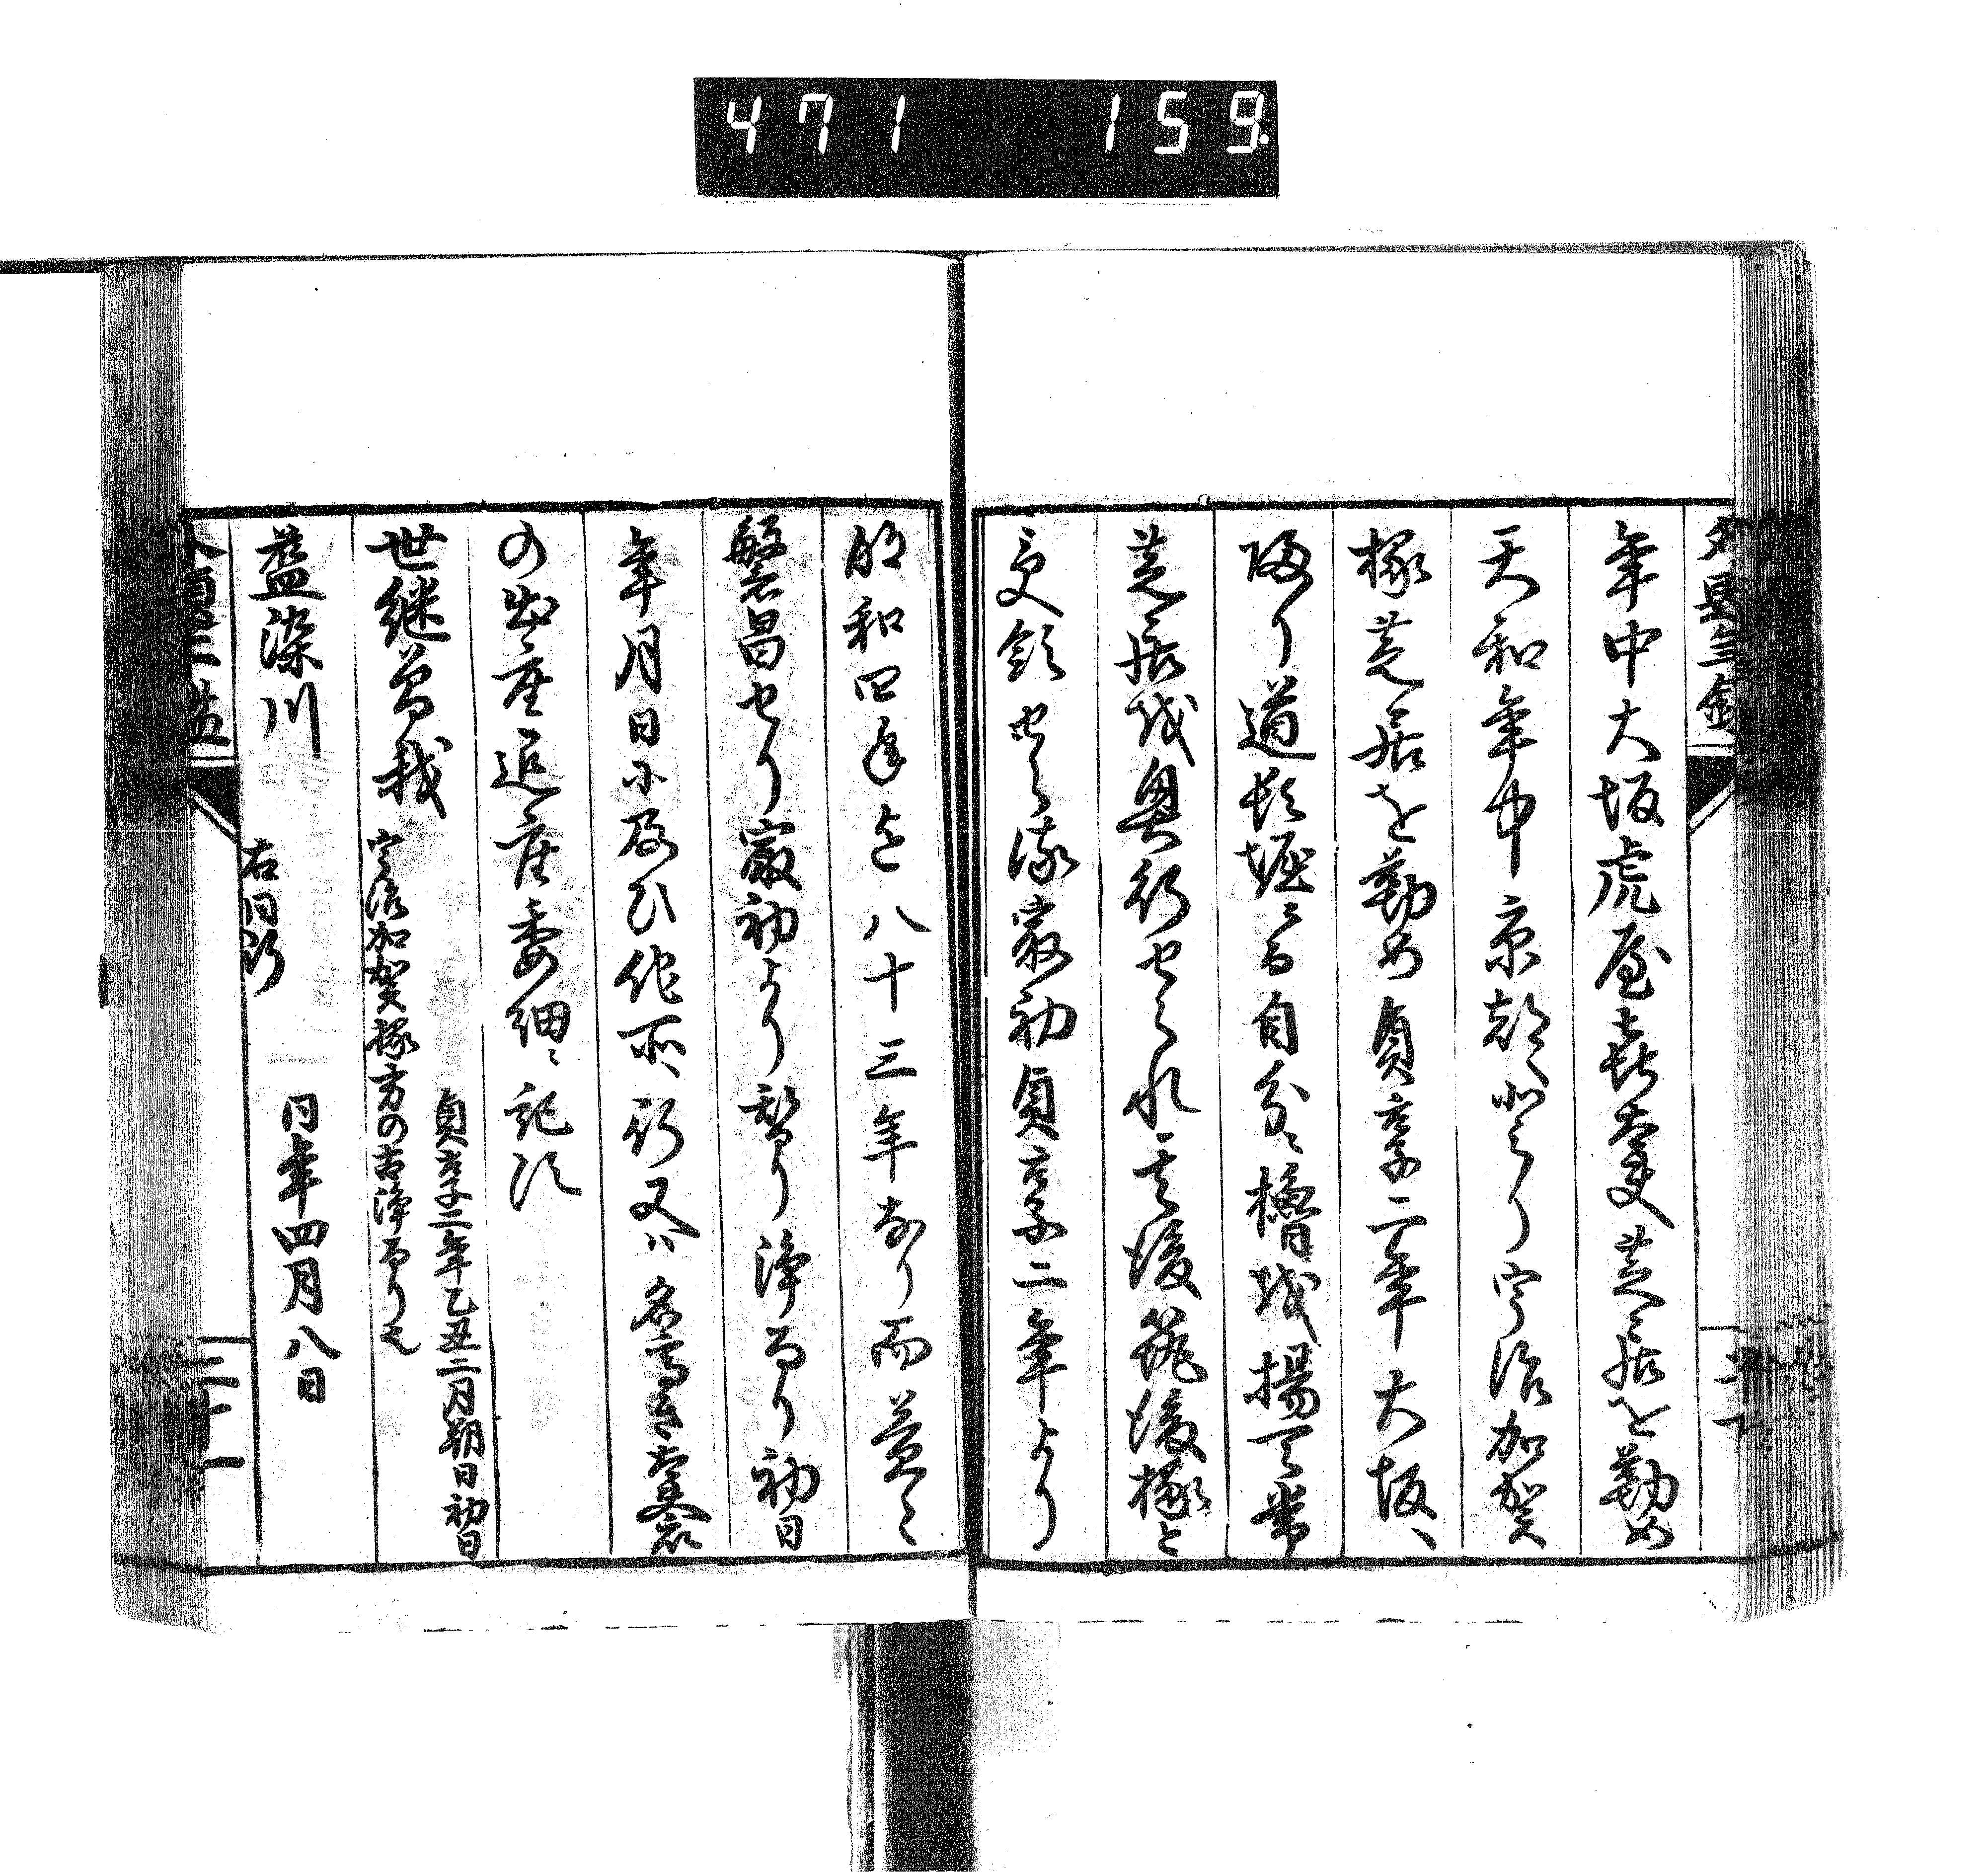 471 159
外題年鑑
年中大坂虎屋喜太夫芝居を勤め
天和年中京都に登り宇治加賀
掾芝居を勤め貞享二年大坂へ
帰り道頓堀にて自分に櫓を揚て常
芝居を興行せられ其後筑後掾と
受領せられ最初貞享二年より
明和四年迄八十三年なり而益々
繁昌せり最初より替り浄るり初日
年月日に及び作所行又は名高き太夫衆
の出座退座委細に記す
世継曽我
貞享二年乙丑二月朔日初日
宇治加賀掾方の古浄るり也
藍染川
右同断
同年四月八日